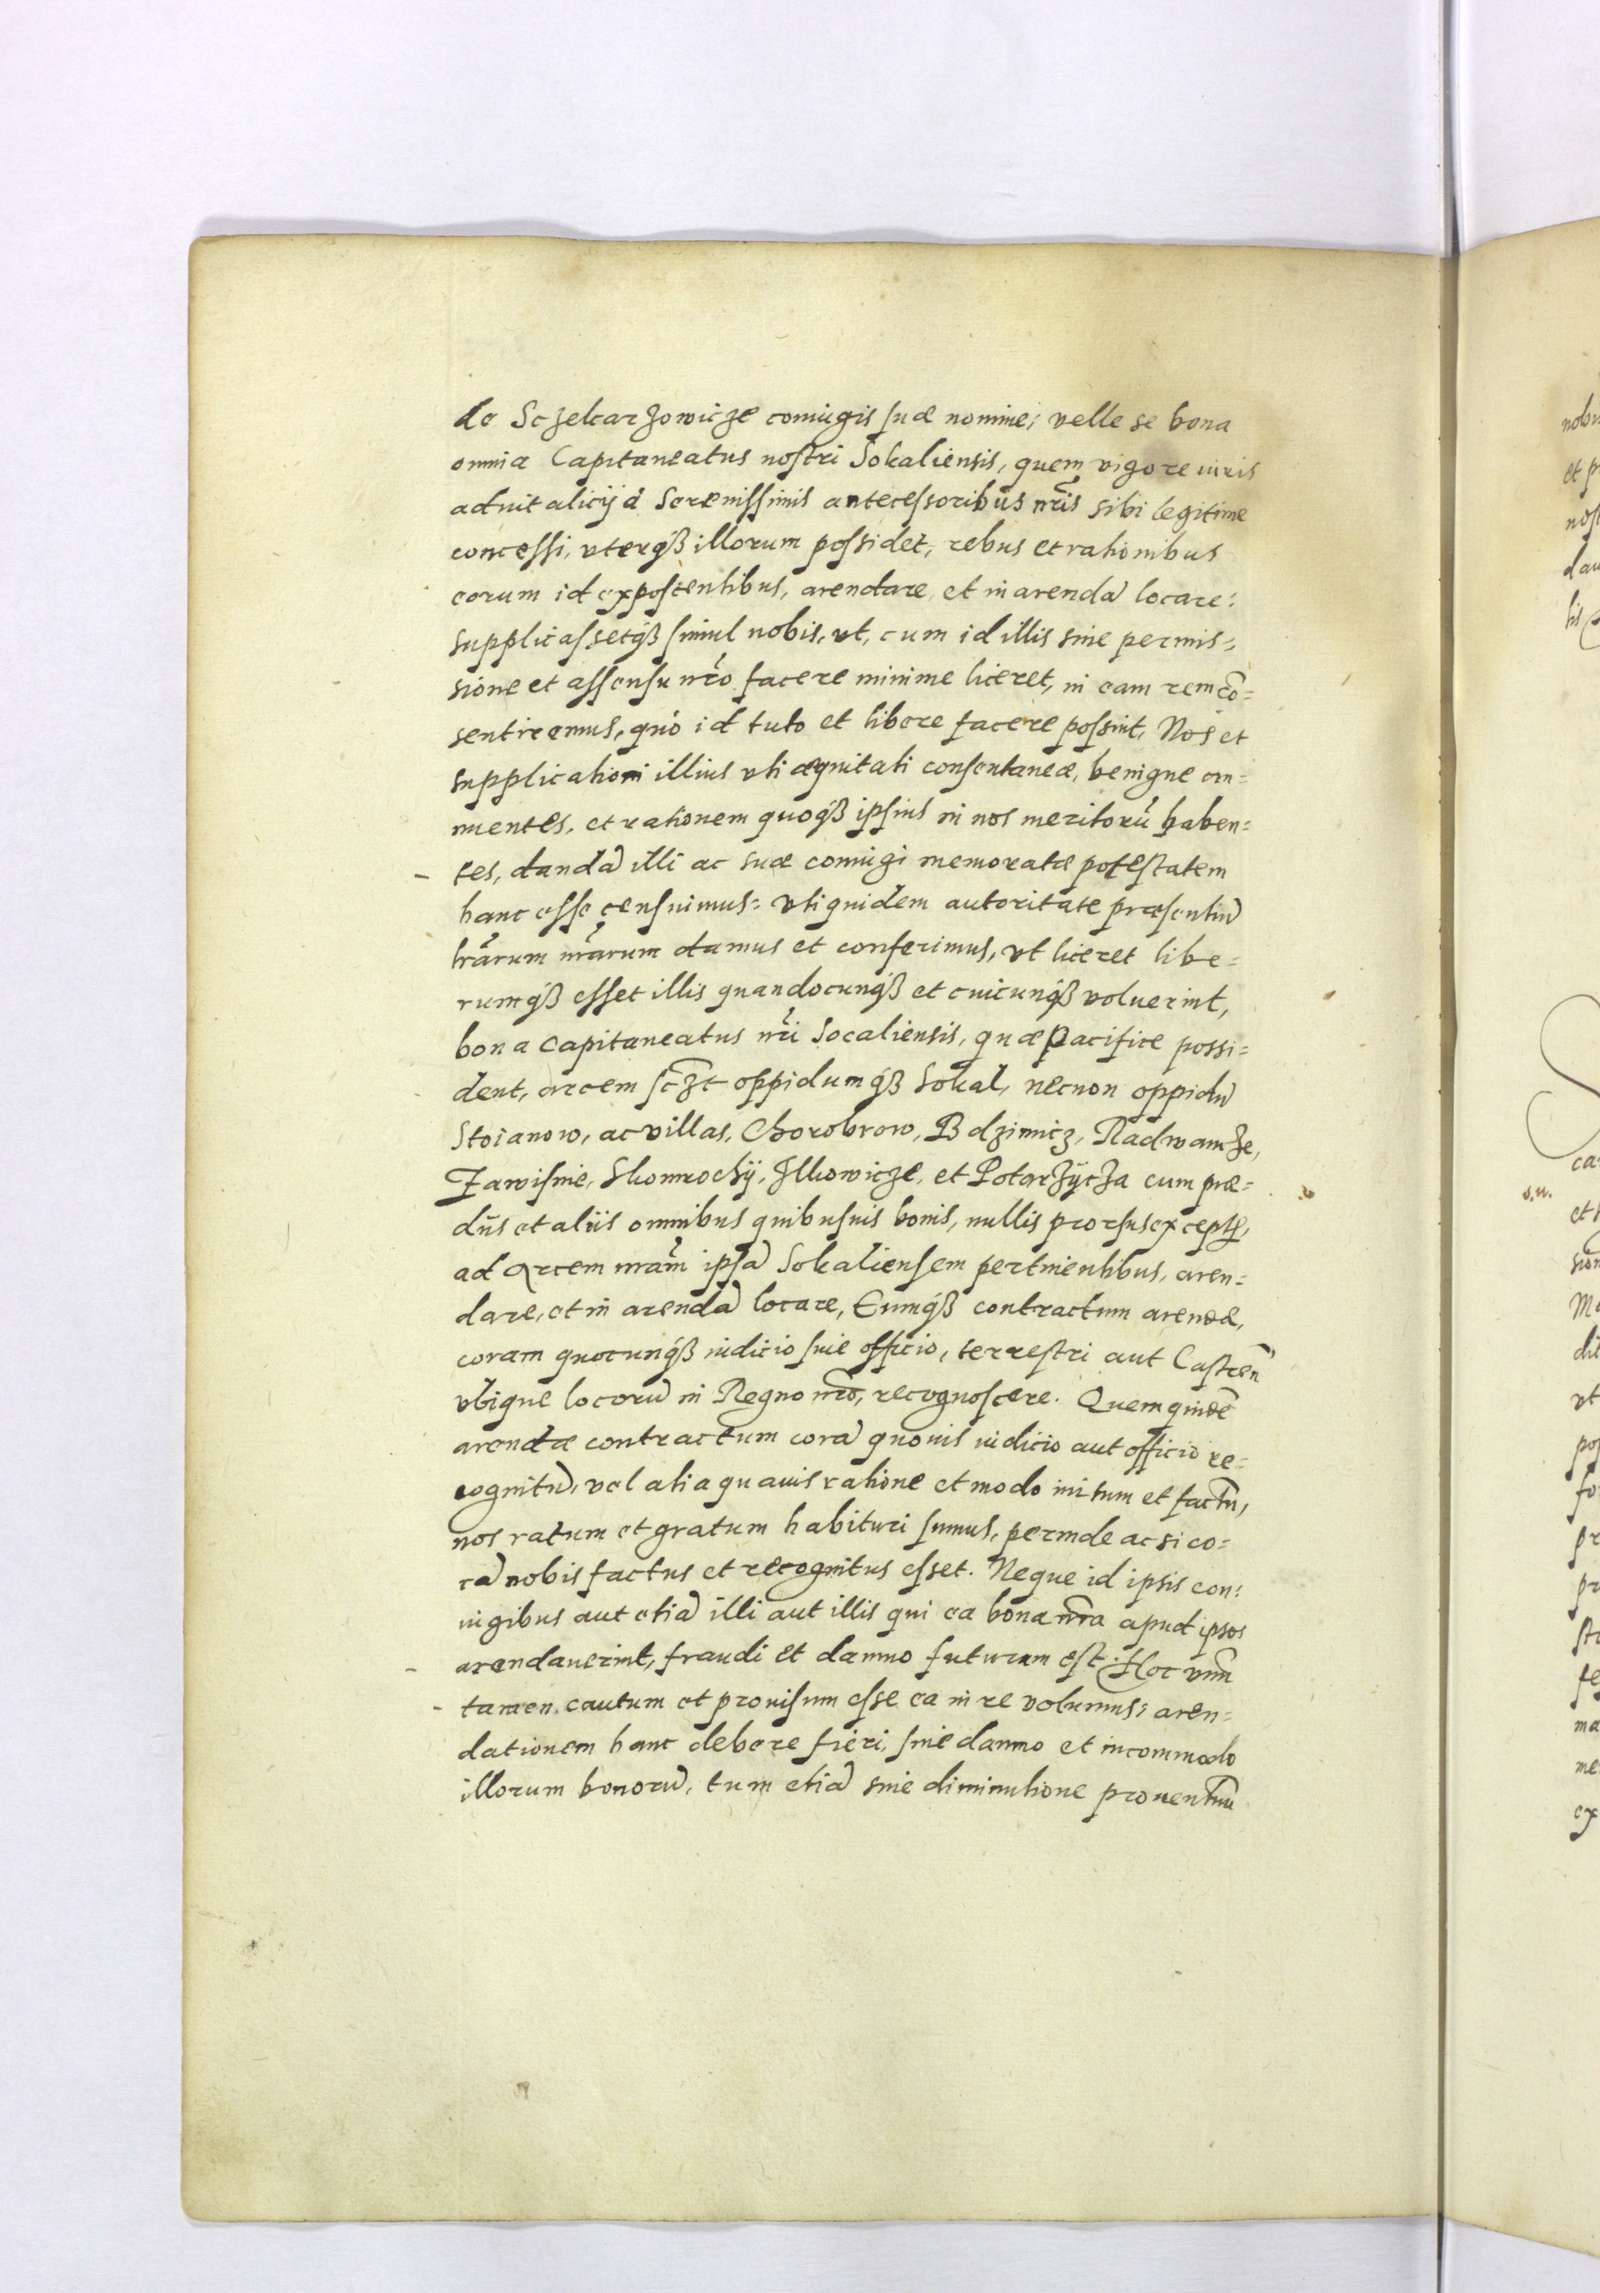 de Sczekarzowicze coniugis suæ nomine; velle se bona
omnia Capitaneatus nostri Sokaliensis, quem vigore iuris
aduitalicij à Serenissimis antecessoribus nr̃is sibi legitime
concessi, vterqß illorum possidet, rebus et rationibus
eorum id exposcentibus, arendare, et in arendã locare:
supplicassetqß simul nobis, vt, cum id illis sine permis=
sione et assensu nr̃o facere minime liceret, in eam rem cõ=
sentiremus, quò id tuto et libere facere possint, Nos et
supplicationi illius vti æquitati consentaneæ, benigne an=
nuentes, et rationem quoqß ipsius in nos meritorũ haben=
tes, dandã illi ac suæ coniugi memoratæ potestatem
hanc esse censuimus: vti quidem autoritate præsentiũ
lr̃arum nr̃arum damus et conferimus, vt liceret libe=
rumqß esset illis quandocunqß et cuicunqß voluerint,
bona Capitaneatus nr̃i Socaliensis, quæ pacifice possi=
dent, arcem sc̃zt oppidumqß Sokal, necnon oppidũ
Stoianow, ac villas, Chorobrow, Bdzimicz, Radwancze,
Zawisnie, Skomrochÿ, Ilkowicze, et Potorzÿcza cum præ=
dijs et aliis omnibus quibusuis bonis, nullis prorsus exceptis,
ad Arcem nr̃am ipsã Sokaliensem pertinentibus, aren=
dare, et in arendã locare, Eumqß contractum arendæ,
coram quocunqß iudicio siue officio, terrestri aut Castren̄
vbique locorũ in Regno nr̃o, recognoscere. Quem quidẽ
arendæ contractum corã quouis iudicio aut officio re=
cognitũ, vel alia quauis ratione et modo initum et factũ,
nos ratum et gratum habituri sumus, perinde ac si co=
rã nobis factus et recognitus esset. Neque id ipsis con=
iugibus aut etiã illi aut illis qui ea bona nr̃a apud ipsos
arendauerint, fraudi et damno futurum est. Hoc vnũ
tamen cautum et prouisum esse ea in re volumus, aren=
dationem hanc debere fieri, sine damno et incommodo
illorum bonorũ, tum etiã sine diminutione prouentuũ